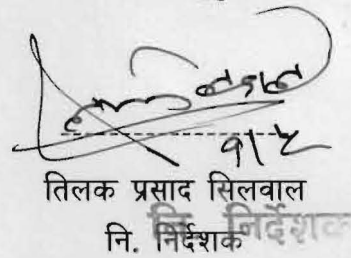 ९/५
तिलक प्रसाद सिलवाल
नि. निर्देशक
नि. निर्देशक